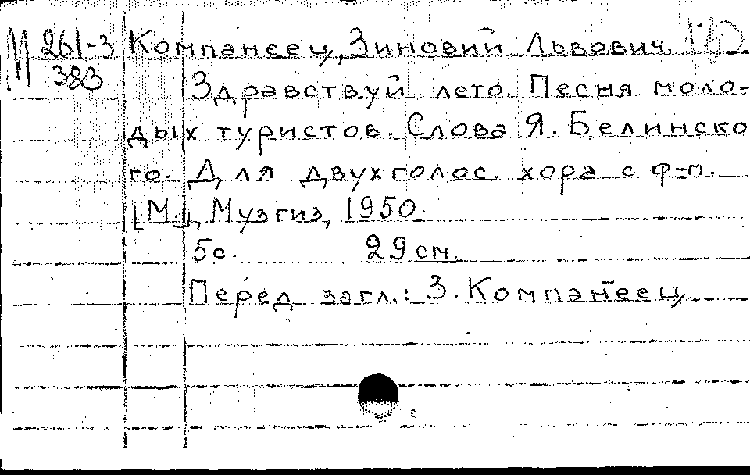 М 261-3 Компанеец, Зиновий Львович
383 Здравствуй лето. Песня моло-
дых туристов. Слова Я. Белинско-
го. Для двухголос. хора с ф-п.
[М.], Музгиз, 1950.
5с. 29см.
Перед загл.: З. Компанеец